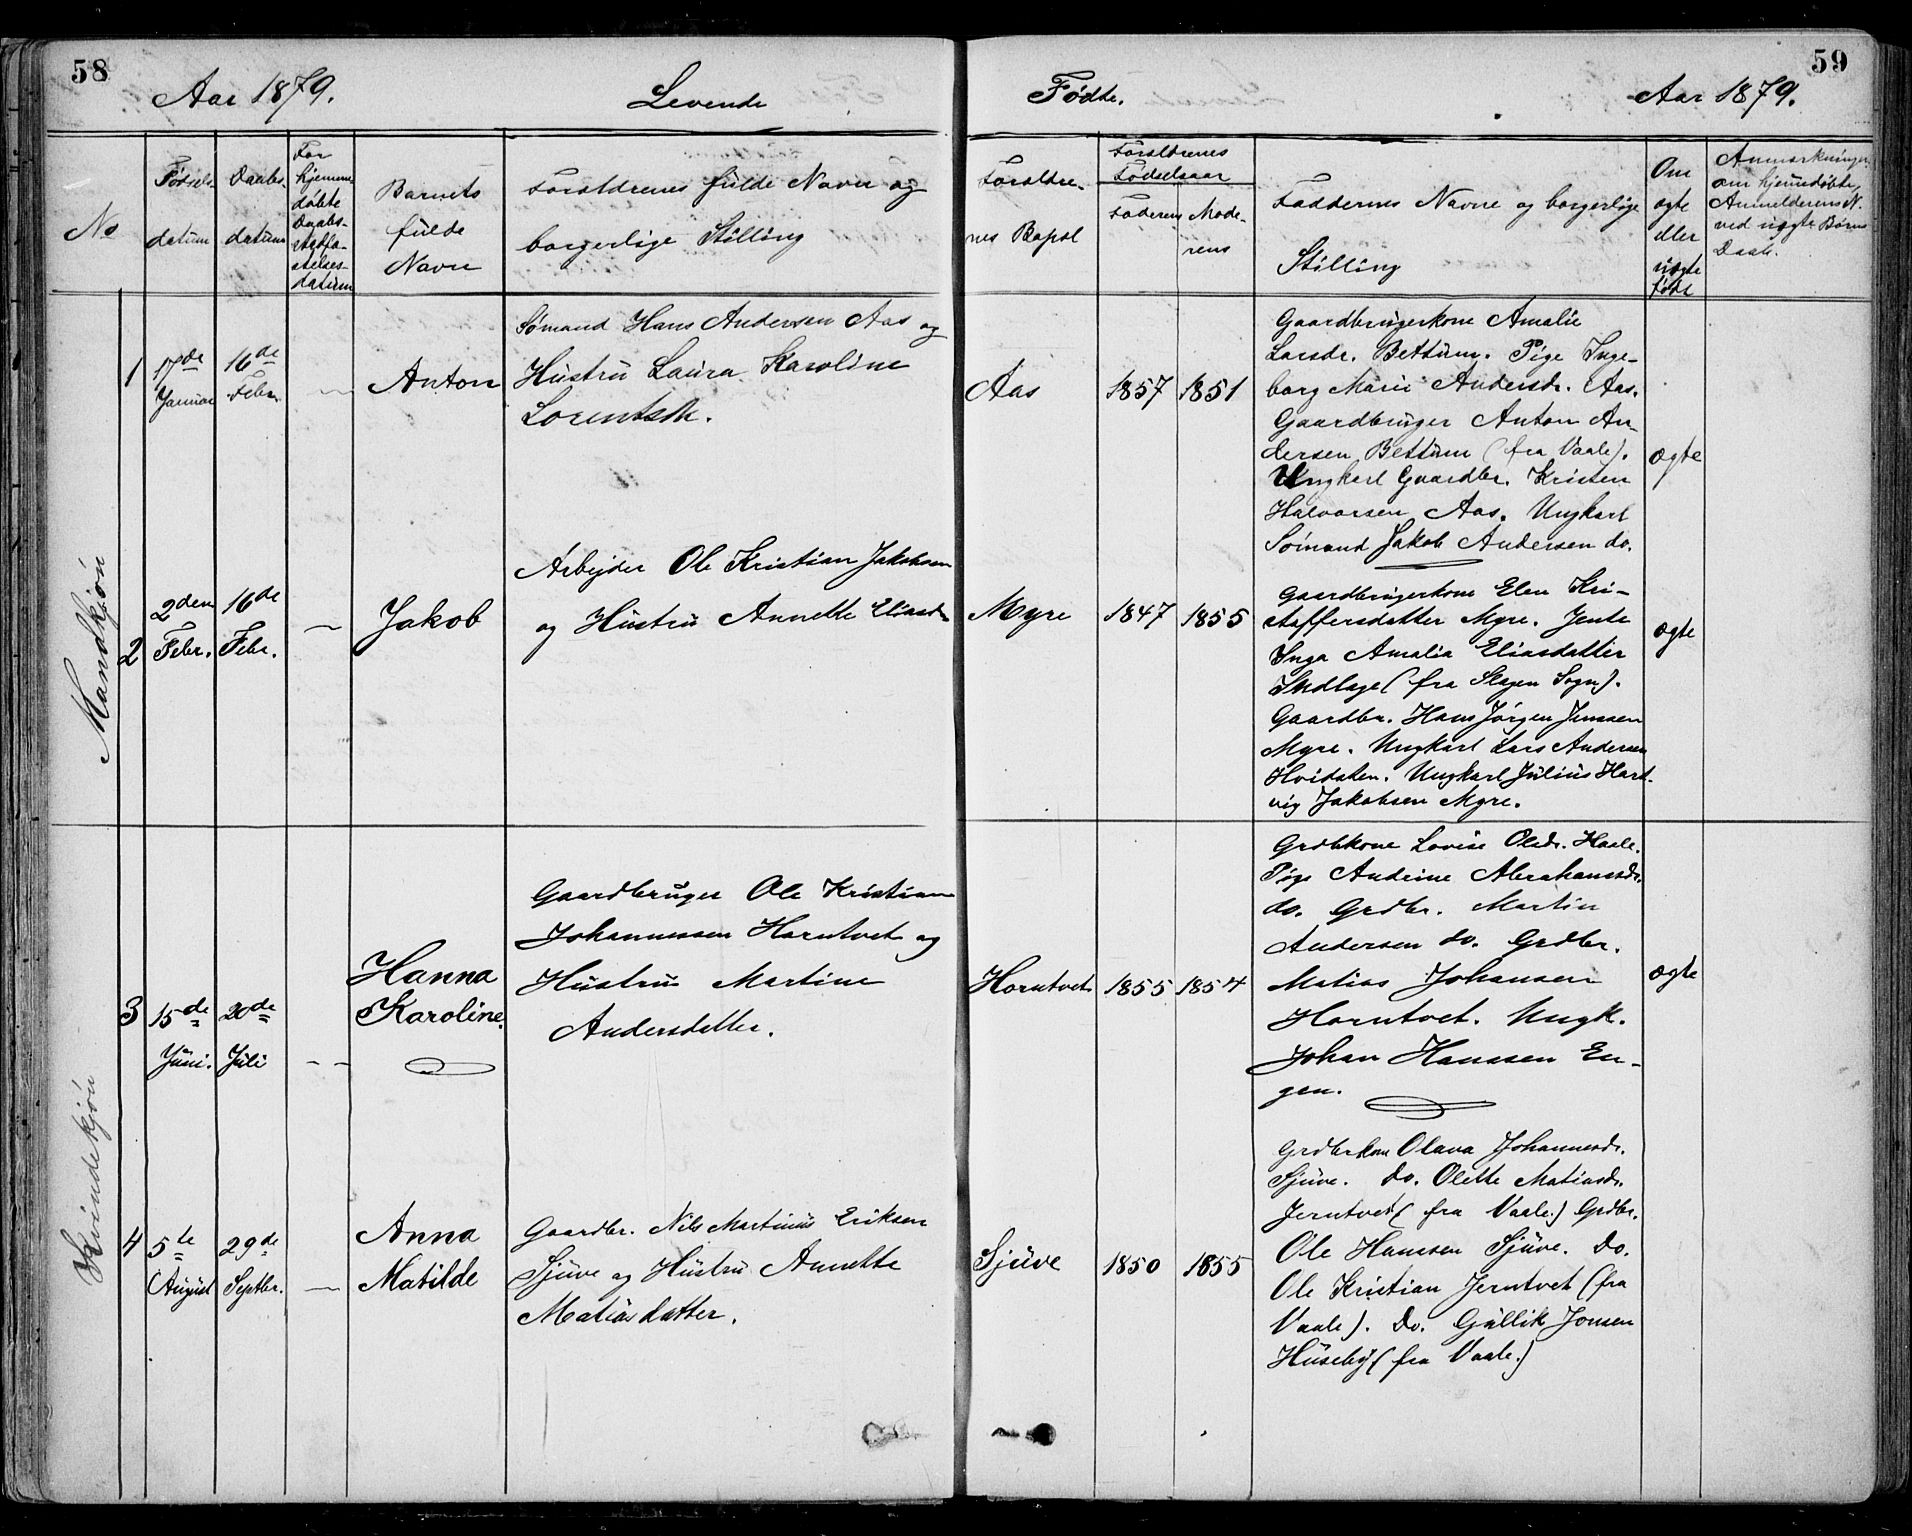 58
Aar 1879.
Levende
Fødte.
Aar 1879.
59
No
Fødsels-
datum
Daabs-
datum
For
hjemme-
døbte
Daabs-
stadfæ-
stelses-
datum
Barnets
fulde
Navn
Forældrenes fulde Navn og
borgerlige Stilling
Forældre-
nes Bopæl
Forældrenes
Fødselsaar
Faderens
Mode-
rens
Faddernes Navne og borgerlige
Stilling
Om
ægte
eller
uægte
født
Anmærkninger
om hjemmedøbte,
Anmelderens N.
ved uægte Børns
Daab.
Mandkjøn
1
17de
Januar
16de
Febr.
—
Anton
Sømand Hans Andersen Aas og
Hustru Laura Karoline
Lorentsdtr.
Aas
1857
1851
Gaardbrugerkone Amalie
Larsdr. Bettum. Pige Inge-
borg Marie Andersdr. Aas.
Gaardbruger Anton An-
dersen Bettum (fra Vaale).
Ungkarl Gaardbr. Kristen
Halvorsen Aas. Ungkarl
Sømand Jakob Andersen do.
ægte
2
2den
Febr.
16de
Febr.
—
Jakob
Arbejder Ole Kristian Jakobsen
og Hustru Annette Eliasdr
Myre
1847
1855
Gaardbrugerkone Elen Kri-
stoffersdatter Myre. Jente
Inga Amalia Eliasdatter
Indlage (fra Slagen Sogn).
Gaardbr. Hans Jørgen Jenssen
Myre. Ungkarl Lars Andersen
Hvidsten. Ungkarl Julius Hart-
vig Jakobsen Myre.
ægte
Kvindekjøn
3
15de
Juni.
20de
Juli
—
Hanna
Karoline.
Gaardbruger Ole Kristian
Johannessen Horntvet og
Hustru Martine
Andersdatter.
Horntvet
1855
1854
Grdbkone Lovise Olsdr. Haale.
Pige Andrine Abrahamsdr.
do. Grdbr. Martin
Andersen do. Grdbr.
Matias Johansen
Horntvet. Ungk.
Johan Hanssen En-
gen.
ægte
4
5te
August
29de
Septbr.
—
Anna
Matilde
Gaardbr. Nils Martinius Eriksen
Sjuve og Hustru Annette
Matiasdatter.
Sjuve
1850
1855
Grdbrkone Olava Johannesdr.
Sjuve. Do. Olette Matiasdr.
Jerntvet (fra Vaale.) Grdbr.
Ole Hanssen Sjuve. Do.
Ole Kristian Jerntvet (fra
Vaale). Do. Gullik Jonsen
Huseby (fra Vaale.)